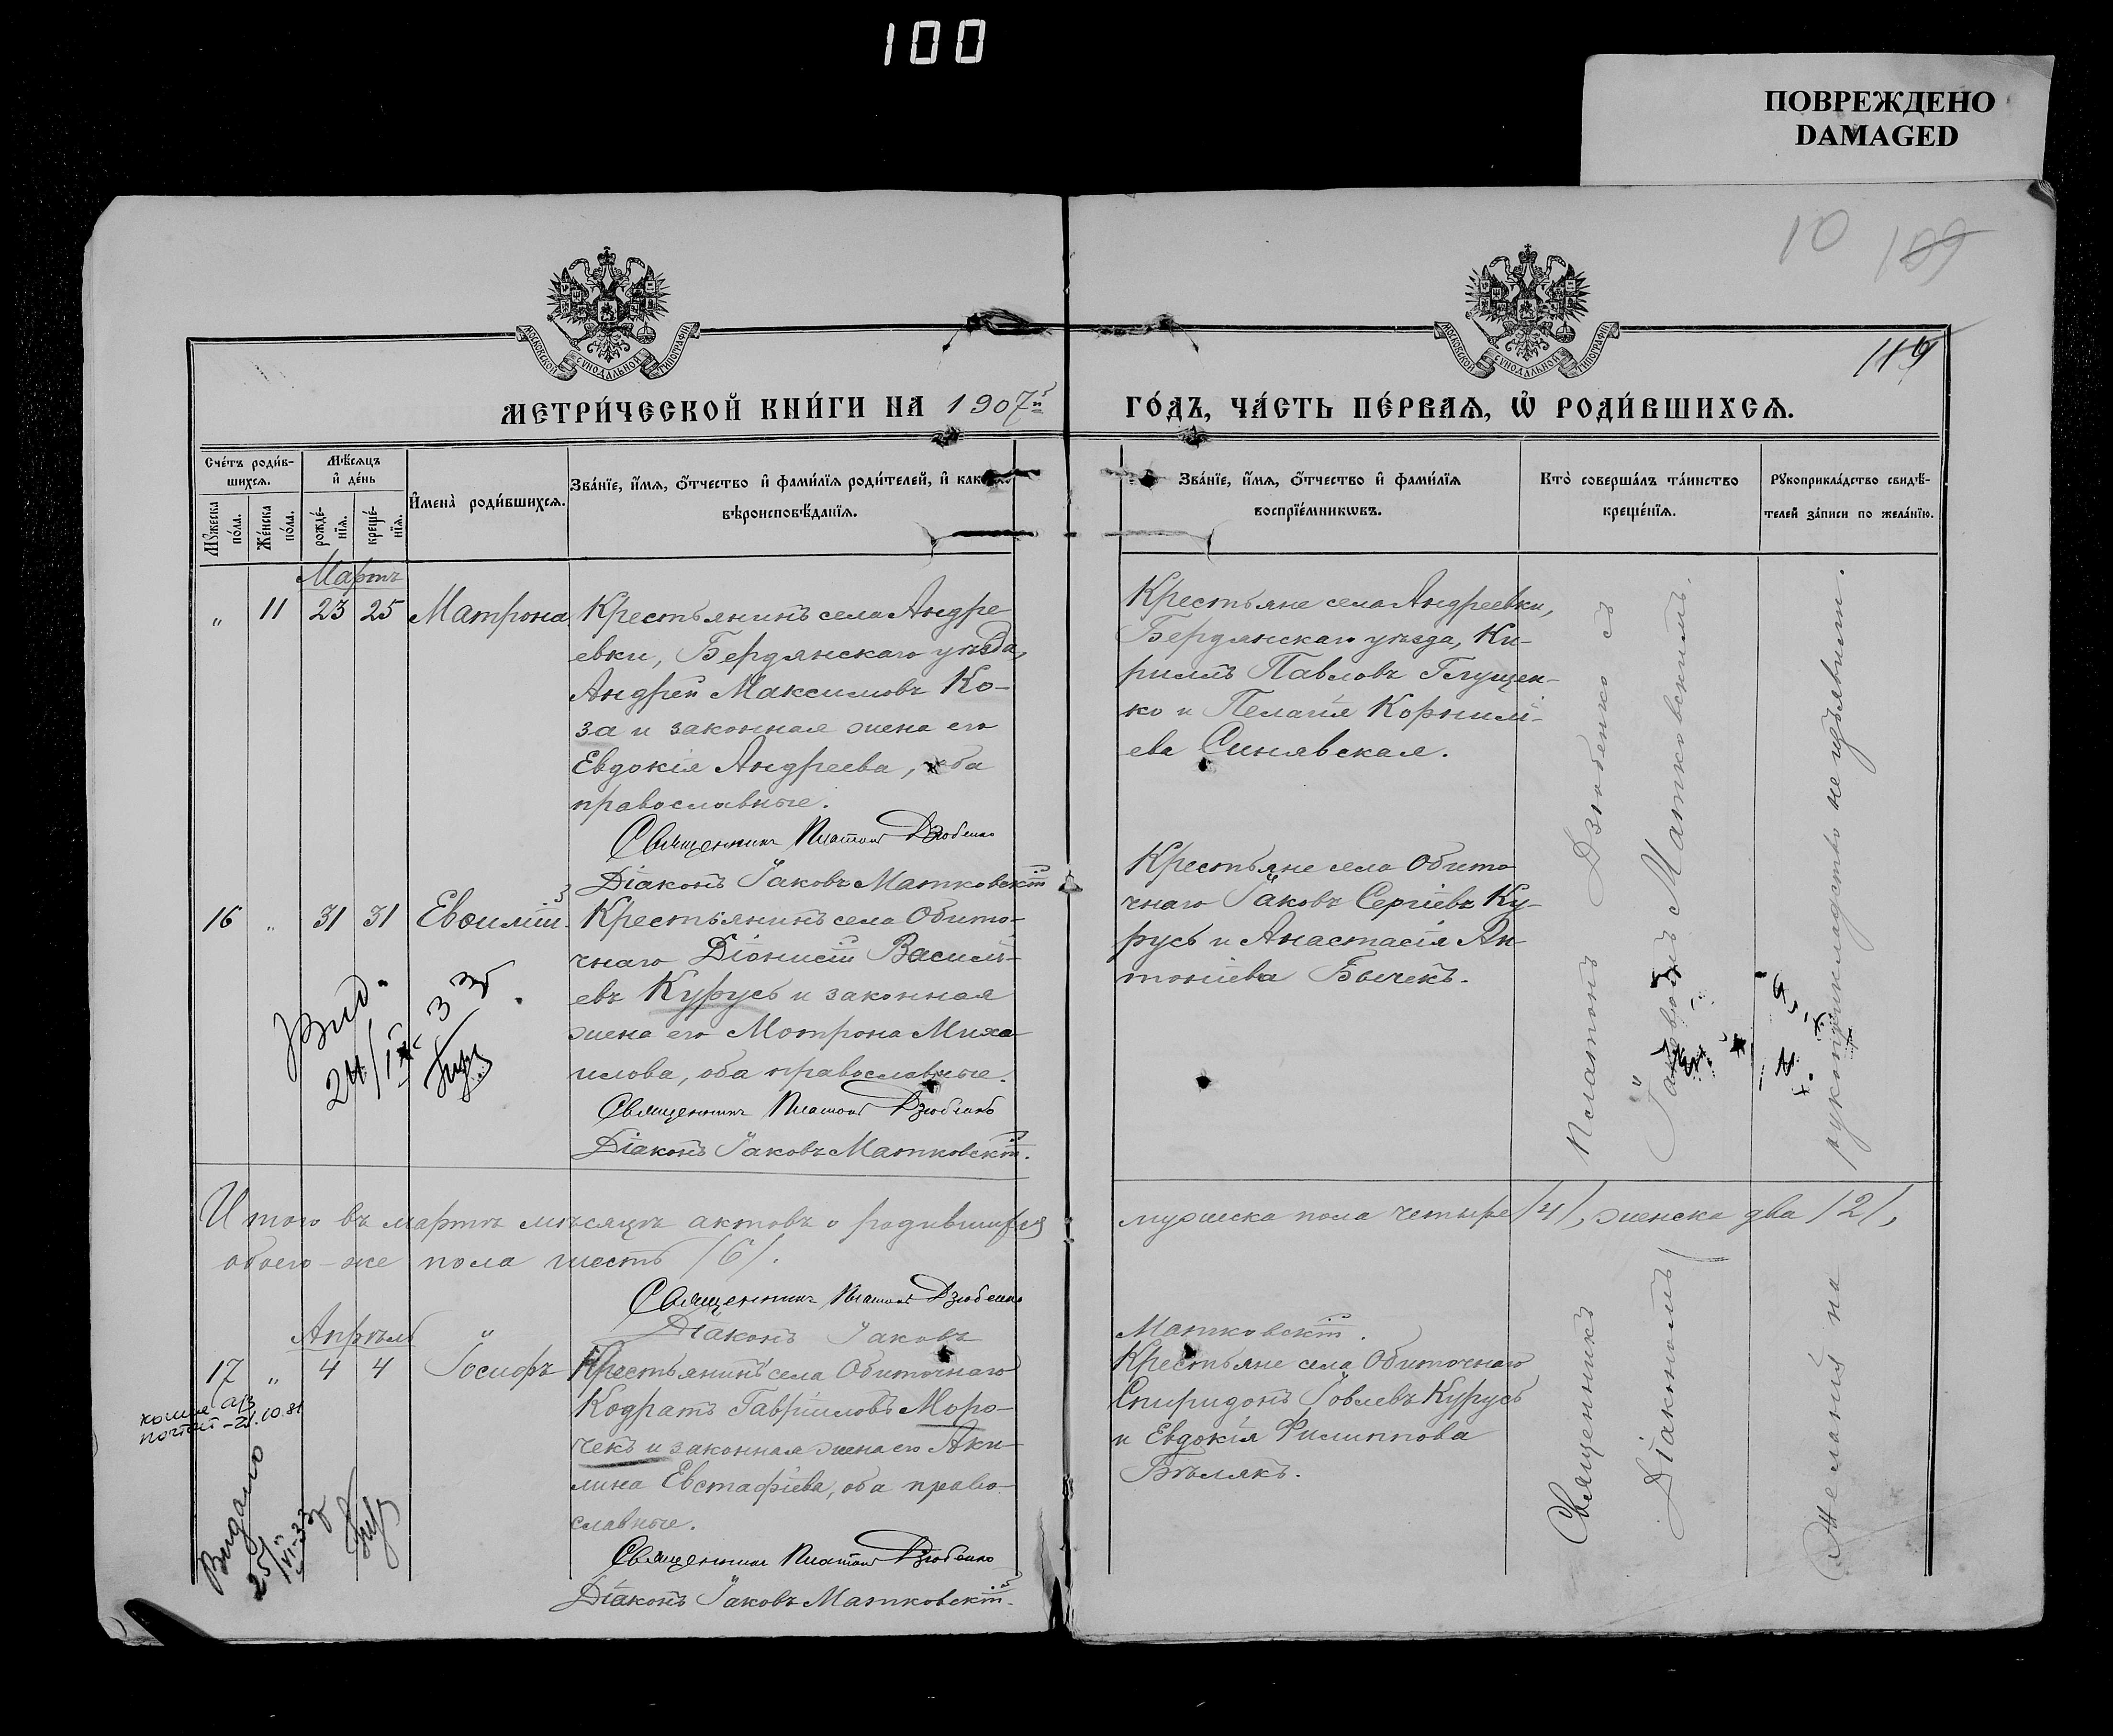 100
ПОВРЕЖДЕНО
DAMAGED
10 109
119
МОСКОВСКОЙ СѴНОДАЛЬНОЙ ТИПОГРАФІИ
МОСКОВСКОЙ СѴНОДАЛЬНОЙ ТИПОГРАФІИ
МЕТРИ́ЧЕСКОЙ КНИ́ГИ НА 1907й
ГО́ДЪ, ЧА́СТЬ ПЕ́РВАѦ, Ѡ҆ РОДИ́ВШИХСѦ.
Сче́тъ роди́в-
шихсѧ.
Мꙋ́жеска
по́ла.
Же́нска
по́ла.
Мѣ́сѧцъ
и҆ де́нь
рожде́-
нїѧ.
креще́-
нїѧ.
И҆мена̀ роди́вшихсѧ.
Зва́нїе, и҆́мѧ, ѻ҆́тчество и҆ фами́лїѧ роди́телей, и҆ како́го
вѣроисповѣ́данїѧ.
Зва́нїе, и҆́мѧ, ѻ҆́тчество и҆ фами́лїѧ
воспрїе́мникѡвъ.
Кто̀ соверша́лъ та́инство
креще́нїѧ.
Рꙋкоприкла́дство свидѣ́-
телей за́писи по жела́нїю.
Мартъ
" 11 23 25 Матрона
Крестьянинъ села Андре
евки, Бердянскаго уѣзда,
Андрей Максимовъ Ко-
за и законная жена его
Евдокія Андреева, оба
православные.
Священникъ Платонъ Дзюбенко
Діаконъ Іаковъ Матковскій
Крестьяне села Андреевки,
Бердянскаго уѣзда, Ки-
риллъ Павловъ Глущен-
ко и Пелагія Корнилі-
ева Синявская.
16 " 31 31 Евѳимій.
Крестьянинъ села Обито-
чнаго Діонисій Василь-
евъ Курусь и законная
жена его Мотрона Миха
илова, оба православные.
Священникъ Платонъ Дзюбенко
Діаконъ Іаковъ Матковскій.
Крестьяне села Обито
чнаго Іаковъ Сергіевъ Ку-
русь и Анастасія Ан
тоніева Бычекъ.
Вид.
24/IX-33
Итого въ мартѣ мѣсяцѣ актовъ о родившихся
мужеска пола четыре /4/, женска два /2/,
обоего-же пола шесть /6/.
Священникъ Платонъ Дзюбенко
Діаконъ Іаковъ
Матковскій.
Апрѣль
17 " 4 4 Іосифъ
Крестьянинъ села Обиточнаго
Кодратъ Гавріиловъ Моро-
чекъ и законная жена его Аки-
лина Евстафіева, оба право-
славные.
Священникъ Платонъ Дзюбенко
Діаконъ Іаковъ Матковскій.
Крестьяне села Обиточнаго
Спиридонъ Іовлевъ Курусь
и Евдокія Филиппова
Бѣлякъ.
Видано
25/VI-33
Священникъ Платонъ Дзюбенко съ
Діакономъ Іаковомъ Матковскимъ.
Желанія на рукоприкладство не изъявили.